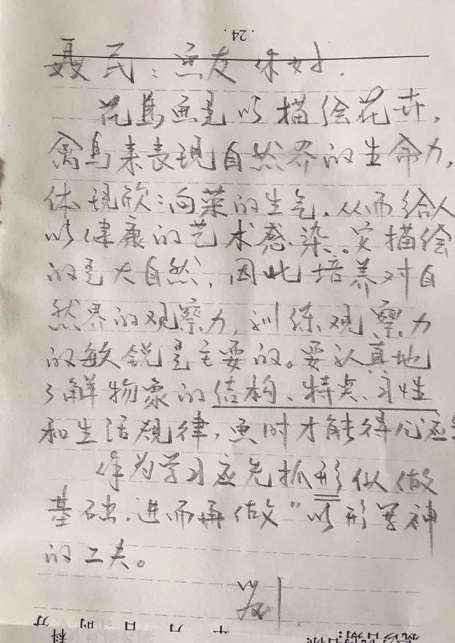 .24.
聂民:画友你好.
花鸟画是以描绘花卉,
禽鸟来表现自然界的生命力,
体现欣欣向荣的生气,从而给人
以健康的艺术感染。它描绘
的是大自然,因此培养对自
然界的观察力,训练观察力
的敏锐是主要的。要认真地
了解物象的结构、特点、习性
和生活规律,画时才能得心应
作为学习应先抓形似做
基础,进而再做"以形写神
的工夫。
年 月 日 时 分